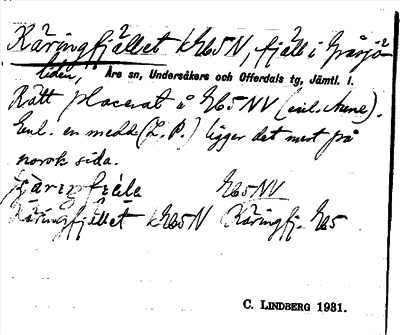 Käringfjället k 265N, fjäll i Gråsjö-
liden, Åre sn, Undersåkers och Offerdals tg, Jämtl. l.
Rätt placerat å 265NV (enl. Mene).
Enl. en medd. (L. P.) ligger det mest på
norsk sida.
265NV
Käringfjället k 265N Käringfj. 265
C. LINDBERG 1931.